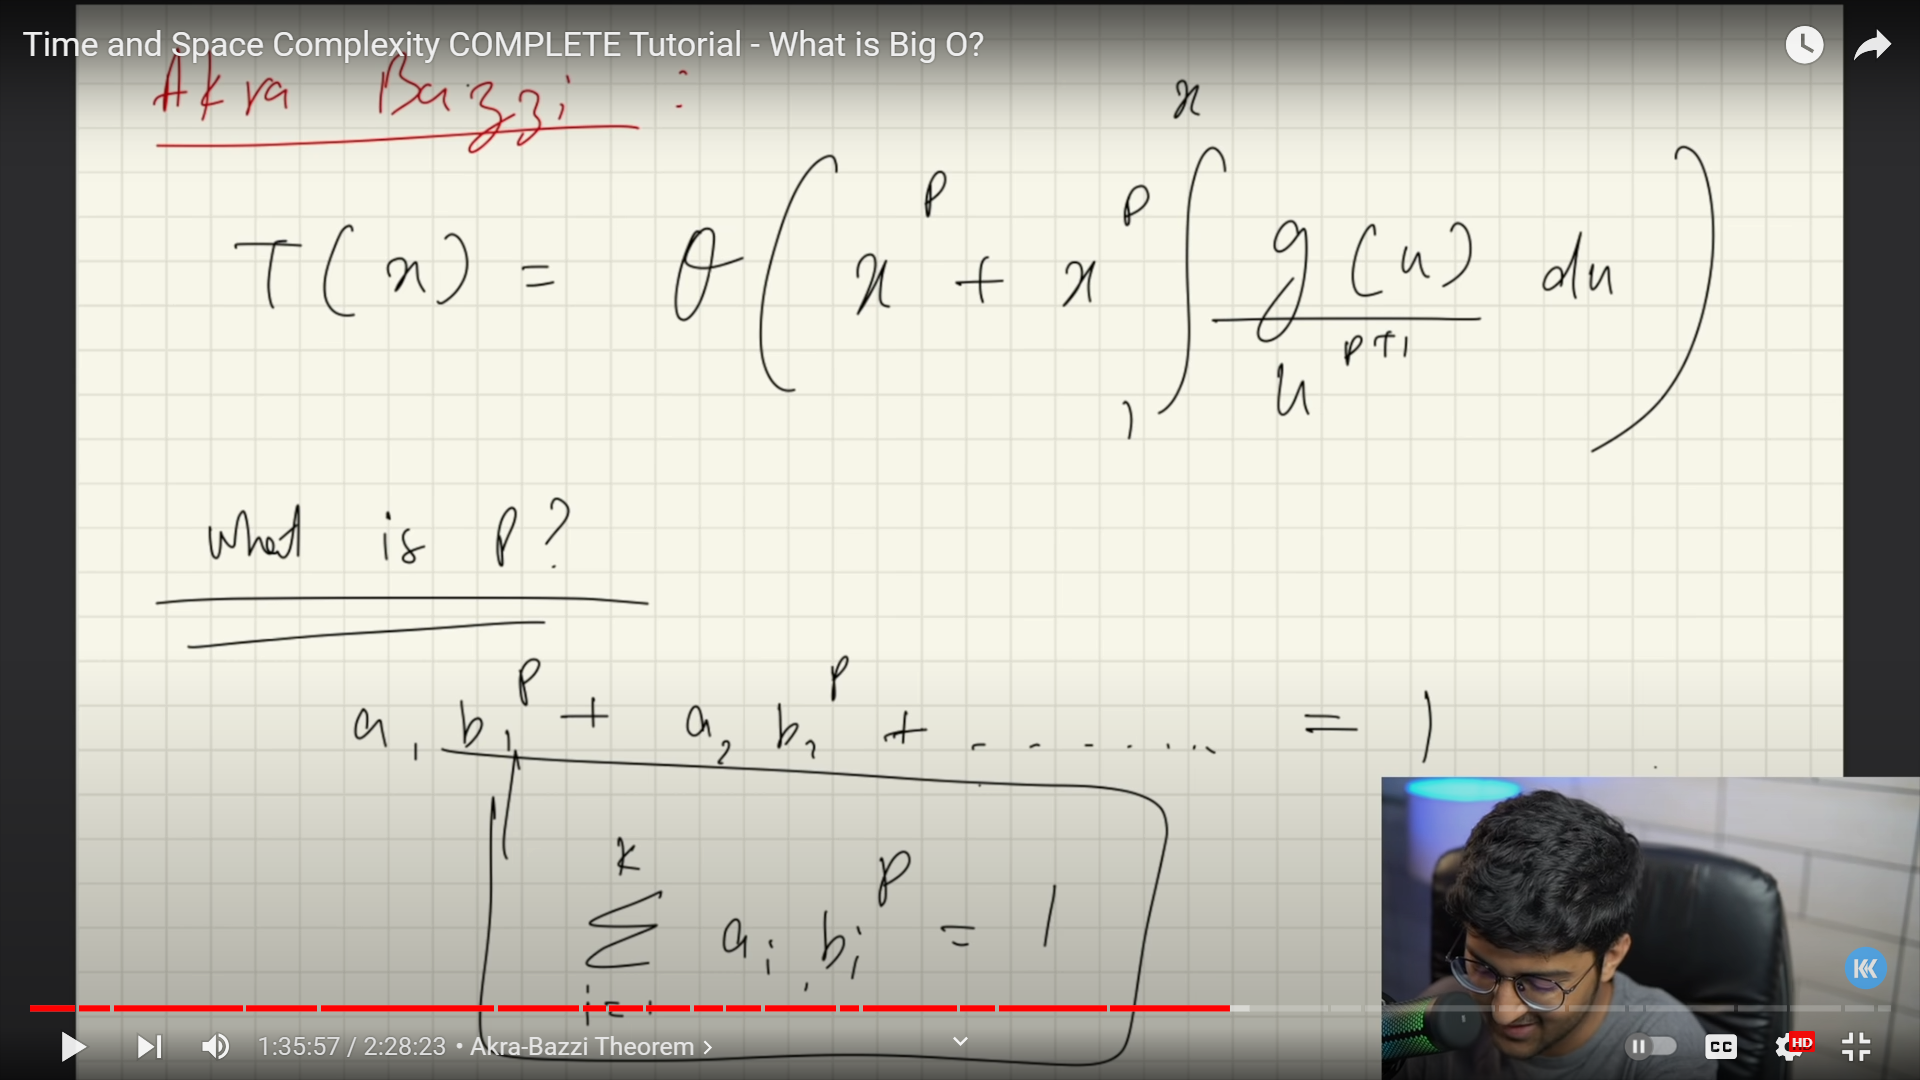 Time and Space Complexity COMPLETE Tutorial - What is Big O?
Akra Bazzi :
T(x) = θ( x^p + x^p ∫_1^x g(u) / u^(p+1) du )
What is P?
a₁ b₁^p + a₂ b₂^p + ........ = 1
Σ_{i=1}^{k} aᵢ bᵢ^p = 1
1:35:57 / 2:28:23 • Akra-Bazzi Theorem >
CC
HD